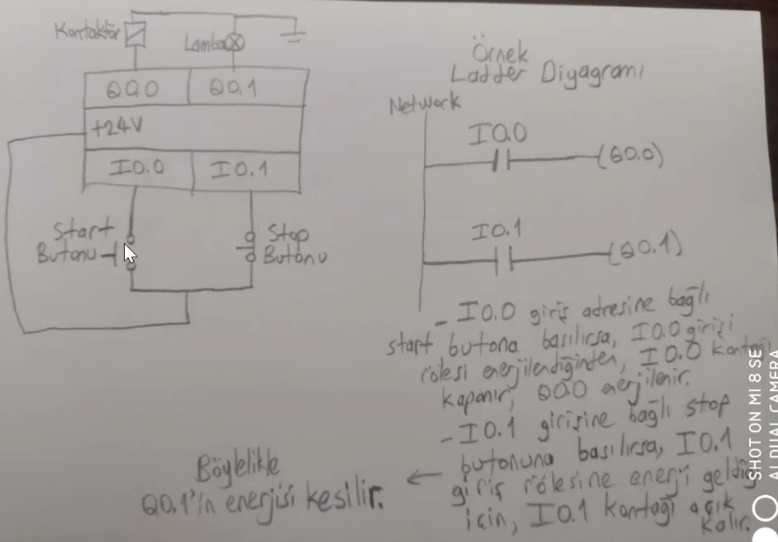 Kontaktör
Lamba
Q0.0 Q0.1
+24V
I0.0 I0.1
Start
Butonu
Stop
Butonu
Örnek
Ladder Diyagramı
Network
I0.0
(Q0.0)
I0.1
(Q0.1)
- I0.0 giriş adresine bağlı
start butona basılırsa, I0.0 girişi
rölesi enerjilendiğinden, I0.0 kontağı
kapanır, Q0.0 enerjilenir.
- I0.1 girişine bağlı stop
butonuna basılırsa, I0.1
giriş rölesine enerji geldiği
için, I0.1 kontağı açık
kalır.
Böylelikle
Q0.1'in enerjisi kesilir.
SHOT ON MI 8 SE
AI DUAL CAMERA